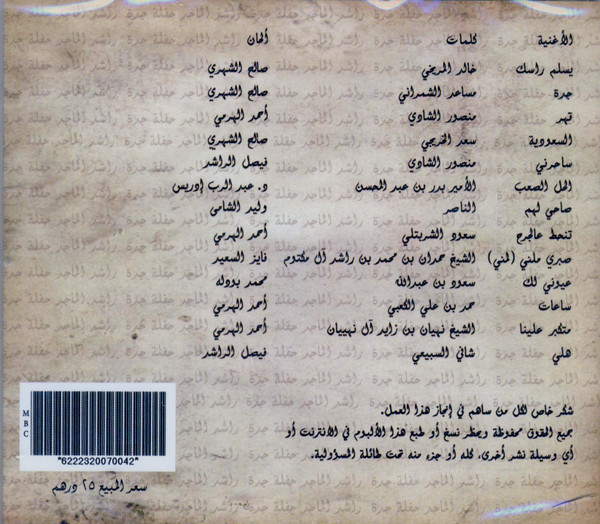 الأغنية كلمات ألحان
يسلم راسك خالد المريخي صالح الشهري
جدة مساعد الشمراني صالح الشهري
قهر منصور الشادي أحمد الهرمي
السعودية سعد الخريجي صالح الشهري
ساحرني منصور الشادي فيصل الراشد
الحل الصعب الأمير بدر بن عبد المحسن د. عبد الرب إدريس
صاحي لهم الناصر وليد الشامي
تنحط عالجرح سعود الشربتلي أحمد الهرمي
صبري ملني (لمني) الشيخ حمدان بن محمد بن راشد آل مكتوم فايز السعيد
عيوني لك سعود بن عبدالله محمد بودله
ساعات حمد بن علي الكعبي أحمد الهرمي
متكبر علينا الشيخ نهيان بن زايد آل نهيان أحمد الهرمي
هلي شاني السبيعي فيصل الراشد
شكر خاص لكل من ساهم في إنجاز هذا العمل.
جميع الحقوق محفوظة ويحظر نسخ أو طبع هذا الألبوم في الانترنت أو
أي وسيلة نشر أخرى، كله أو جزء منه تحت طائلة المسؤولية.
MBC
"6222320070042"
سعر المبيع ٢٥ درهم